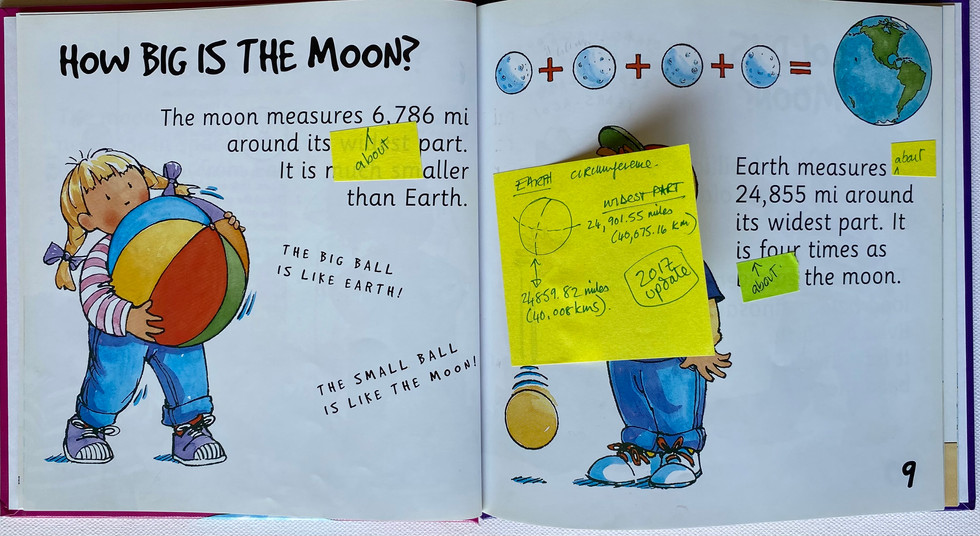 HOW BIG IS THE MOON?
The moon measures 6,786 mi
around its part.
about
It is smaller
than Earth.
THE BIG BALL
IS LIKE EARTH!
THE SMALL BALL
IS LIKE THE MOON!
+ + + =
EARTH circumference.
WIDEST PART
24,901.55 miles
(40,075.16 km)
24859.82 miles
(40,008 kms).
2017
update
Earth measures
about
24,855 mi around
its widest part. It
is four times as
about
the moon.
9